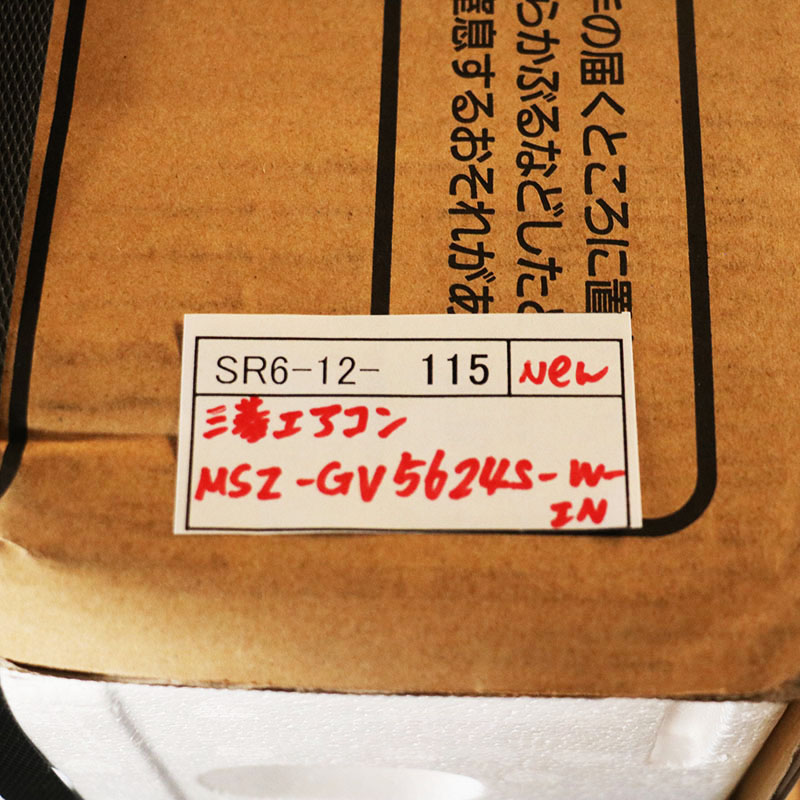 手の届くところに置
らかぶるなどしたと
窒息するおそれがあ
SR6-12- 115 New
三菱エアコン
MSZ-GV5624S-W-
IN